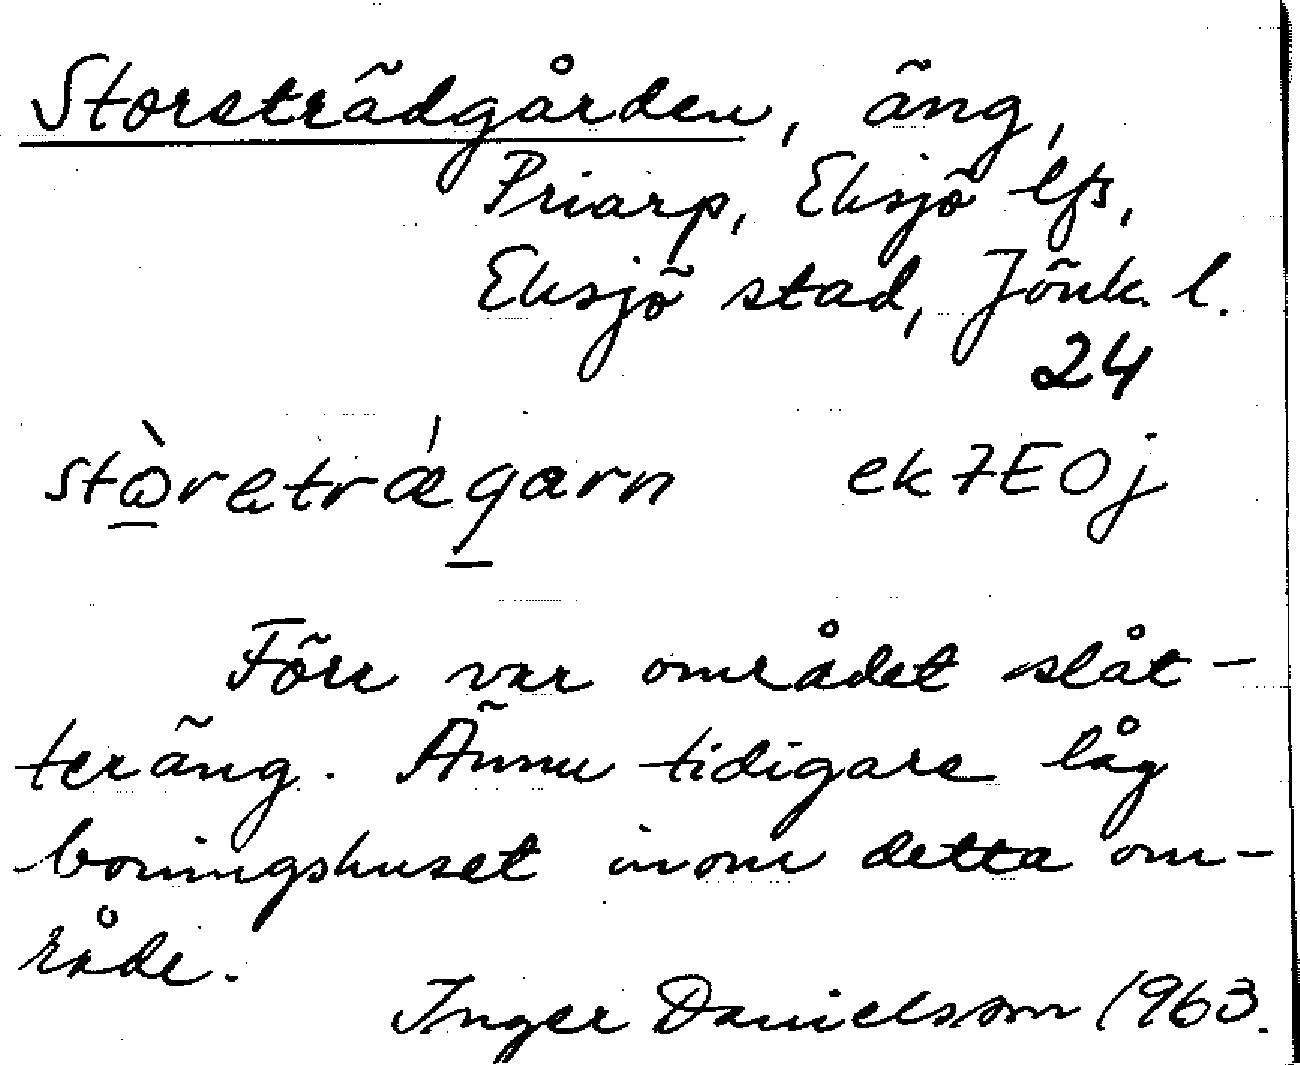 Storeträdgården, äng,
Priarp, Eksjö lfs,
Eksjö stad, Jönk. l.
24
stòretrǽgarn ek 7E0j
Förr var området slåt-
teräng. Ännu tidigare låg
boningshuset inom detta om-
råde.
Inger Danielsson 1963.